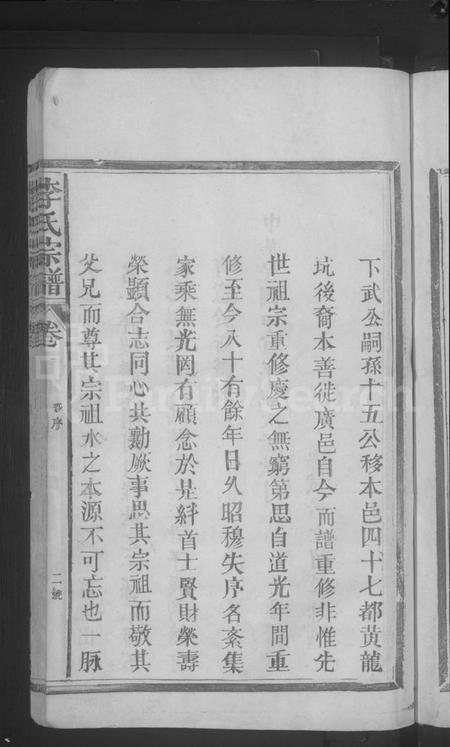 下武公嗣孫十五公移本邑四十七都黄龍
坑後裔本善徙廣邑自今而譜重修非惟先
世祖宗重修慶之無窮第思自道光年間重
修至今八十有餘年日久昭穆失序名紊集
家乘無光罔有顧念於是絆首士賢財榮壽
榮顯合志同心共勷厥事思其宗祖而敬其
父兄而尊其宗祖水之本源不可忘也一脉
李氏宗譜 卷 序 二號
FamilySearch